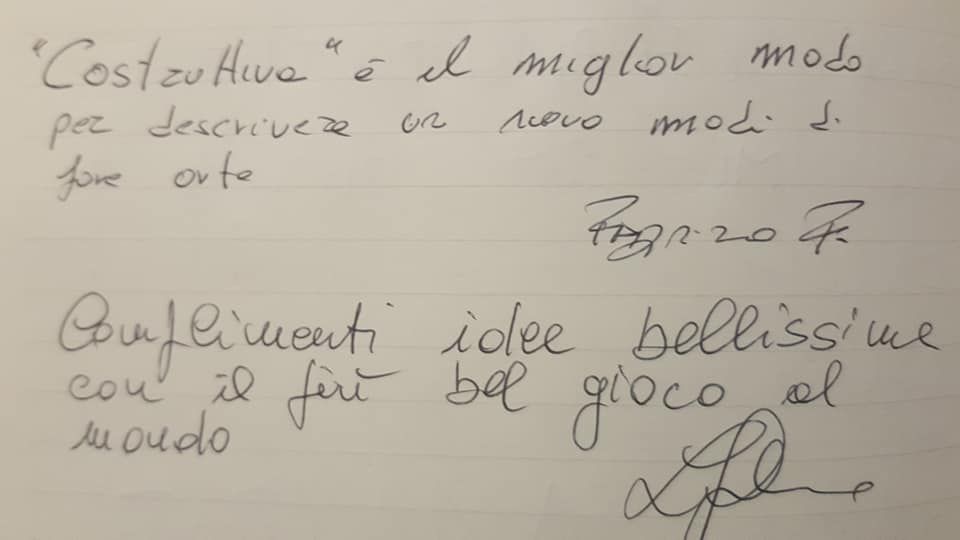 "Costruttiva" è il miglior modo
per descrivere un nuovo modi di
fare arte
F.
Complimenti idee bellissime
con il più bel gioco al
mondo